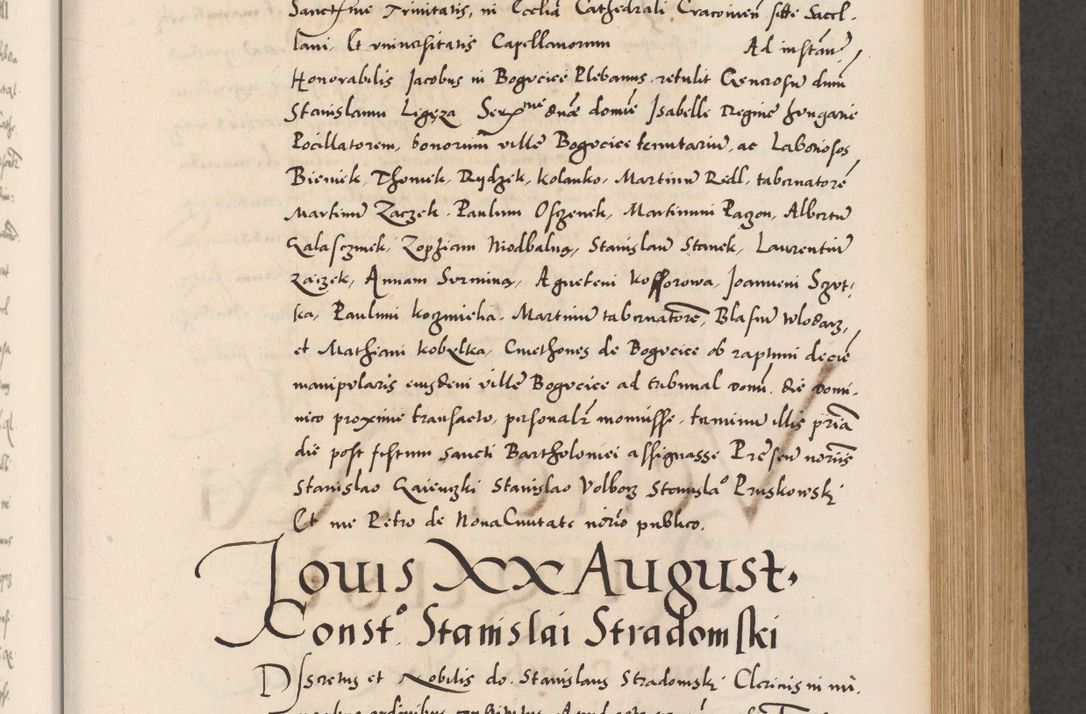 Sanctissime Trinitatis, in Ecclia Cathedrali Cracovien sitte Sacel-
lani, Et universitatis Capellanorum Ad instan
Honorabilis Jacobus in Bogvcice Plebanus, retulit Generosu dnm
Stanislamu Ligęza Serme dne domie Isabelle Regine hungarie
Pocillatorem, bonorum ville Bogvcice tenutariu, ac Laboriosos
Bieniek, Thomek, Rydzek, Kolanko, Martinu Redl, tabernatore
Martinu Zaczek, Paulum Oszenek, Martinum Pagon, Albertu
Galasczmek, Zophiam Niodbalną, Stanislau Stanek, Laurentiu
Zaiczek, Annam Surminą, Agnetem Kossorowa, Joannem Szyt-
ka, Paulum kozmieha, Martinu tabernatore, Blasiu wlodarz,
et Mathiam kobylka, Cmethones de Bogvcice ob raptum decie
manipularis eiusdem ville Bogvcice ad tribunal domi, die domi-
nico proxime transacto, personalr monuisse, terminu illis pria
die post festum sancti Bartholomei assignasse Presen noriis
Stanislao Gaiewzki Stanislao Volborz Stanislao Pruskowski
Et me Petro de Nova Civitate norio publico.
Jovis XX August,
Consto. Stanislai Stradomski
Discretus et Nobilis do. Stanislaus Stradomski Clericus in mi-